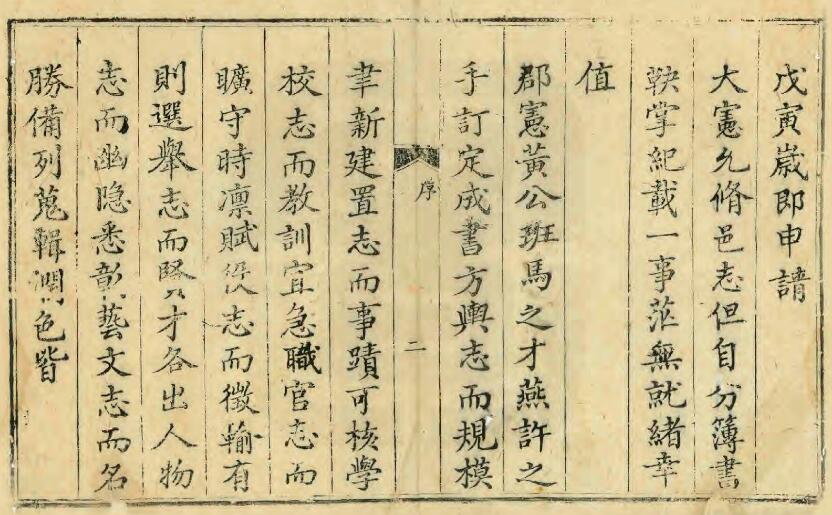 戊寅歲即申請
大憲允脩邑志但自分簿書
鞅掌紀載一事茫無就緒幸
值
郡憲黃公班馬之才燕許之
手訂定成書方輿志而規模
序
二
聿新建置志而事蹟可核學
校志而教訓宜急職官志而
曠守時凛賦役志而徵輸有
則選舉志而賢才各出人物
志而幽隐悉彰藝文志而名
勝備列蒐輯潤色皆